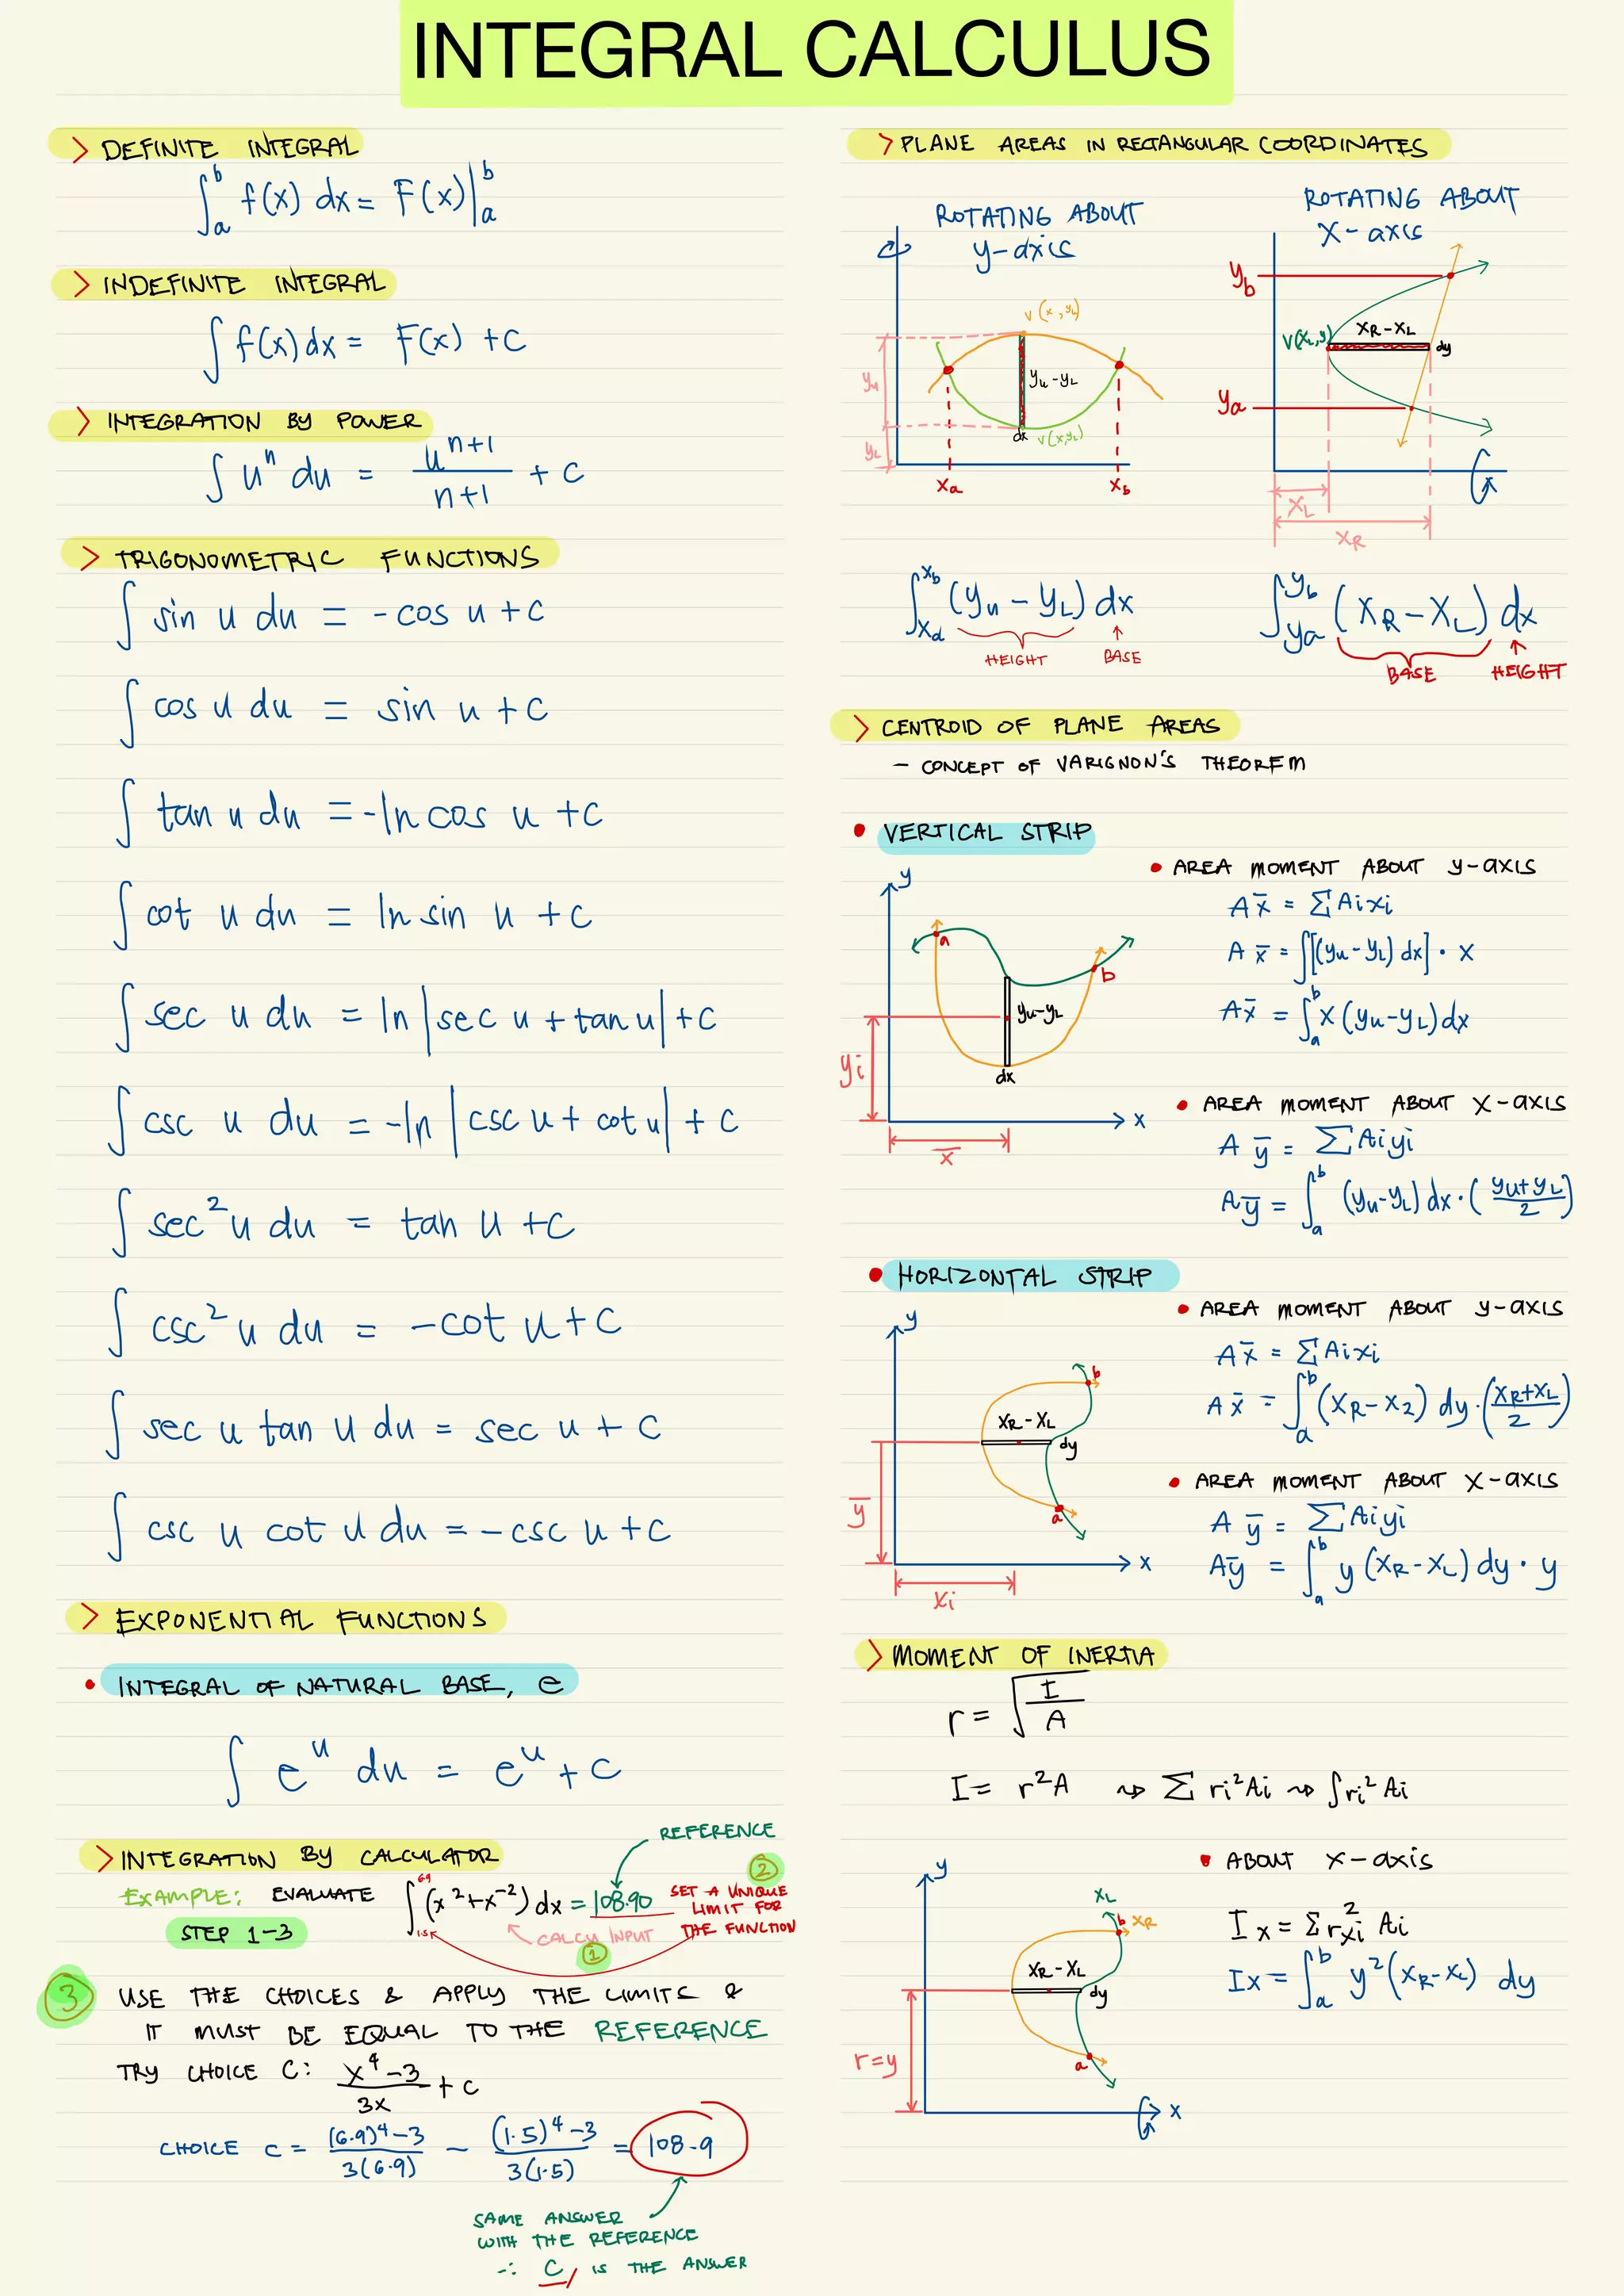 INTEGRAL CALCULUS
> DEFINITE INTEGRAL
∫_a^b f(x) dx = F(x)|_a^b
> INDEFINITE INTEGRAL
∫ f(x) dx = F(x) + C
> INTEGRATION BY POWER
∫ u^n du = u^(n+1)/(n+1) + C
> TRIGONOMETRIC FUNCTIONS
∫ sin u du = -cos u + C
∫ cos u du = sin u + C
∫ tan u du = -ln cos u + C
∫ cot u du = ln sin u + C
∫ sec u du = ln |sec u + tan u| + C
∫ csc u du = -ln |csc u + cot u| + C
∫ sec² u du = tan u + C
∫ csc² u du = -cot u + C
∫ sec u tan u du = sec u + C
∫ csc u cot u du = -csc u + C
> EXPONENTIAL FUNCTIONS
• INTEGRAL OF NATURAL BASE, e
∫ e^u du = e^u + C
> INTEGRATION BY CALCULATOR
REFERENCE
EXAMPLE: EVALUATE ∫_1.5^6.9 (x² + x^-2) dx = 108.90
② SET A UNIQUE
LIMIT FOR
THE FUNCTION
STEP 1-3
CALCU INPUT
①
③ USE THE CHOICES & APPLY THE LIMITS &
IT MUST BE EQUAL TO THE REFERENCE
TRY CHOICE C: (x⁴-3)/3x + C
CHOICE C = ((6.9)⁴-3)/3(6.9) - ((1.5)⁴-3)/3(1.5) = 108.9
SAME ANSWER
WITH THE REFERENCE
∴ C IS THE ANSWER
> PLANE AREAS IN RECTANGULAR COORDINATES
ROTATING ABOUT
y-axis
V(x, yL)
yu
yu-yL
yL
dx
V(x,yL)
xa
xb
ROTATING ABOUT
X-axis
yb
V(XL,y)
XR-XL
dy
ya
XL
XR
∫_xa^xb (yu - yL) dx
HEIGHT
BASE
∫_ya^yb (XR - XL) dx
BASE
HEIGHT
> CENTROID OF PLANE AREAS
- CONCEPT OF VARIGNON'S THEOREM
• VERTICAL STRIP
y
a
b
yu-yL
yi
dx
x
x̄
• AREA MOMENT ABOUT y-axis
A x̄ = ΣAixi
A x̄ = ∫[(yu-yL) dx] · x
A x̄ = ∫_a^b x (yu-yL) dx
• AREA MOMENT ABOUT X-axis
A ȳ = ΣAiyi
A ȳ = ∫_a^b (yu-yL) dx · ((yu+yL)/2)
• HORIZONTAL STRIP
y
b
XR-XL
dy
ȳ
a
x
xi
• AREA MOMENT ABOUT y-axis
A x̄ = ΣAixi
A x̄ = ∫_a^b (XR-X2) dy · ((XR+XL)/2)
• AREA MOMENT ABOUT X-axis
A ȳ = ΣAiyi
A ȳ = ∫_a^b y (XR-XL) dy · y
> MOMENT OF INERTIA
r = √(I/A)
I = r²A ⇝ Σ ri²Ai ⇝ ∫ri²Ai
y
XL
b
XR
XR-XL
dy
r=y
a
x
• ABOUT X-axis
Ix = Σr²xi Ai
Ix = ∫_a^b y² (XR-XL) dy